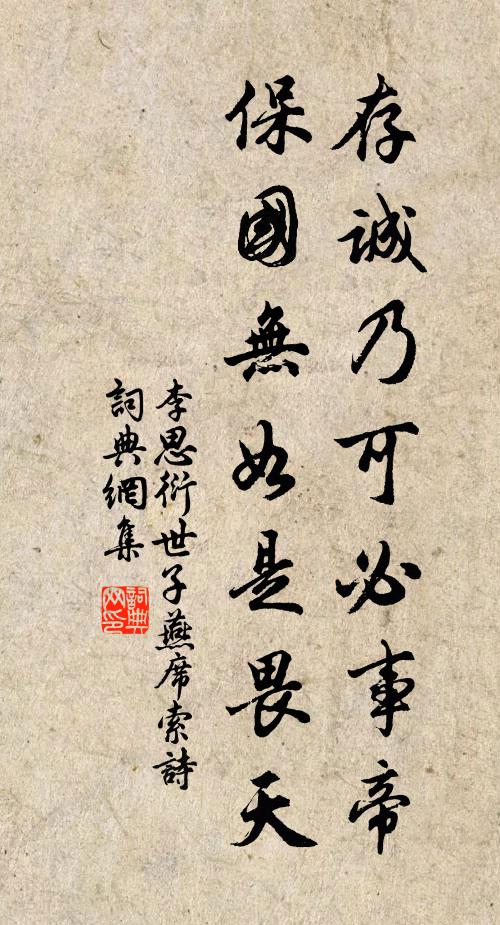 存誠乃可必事帝
保國無如是畏天
李思衍世子燕席索詩
詞典網集
詞典网印